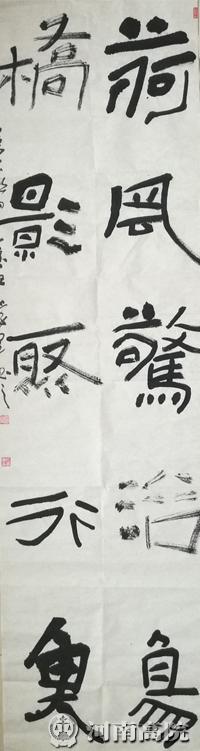 荷風驚浴鳥
橋影聚行魚
河南畫院